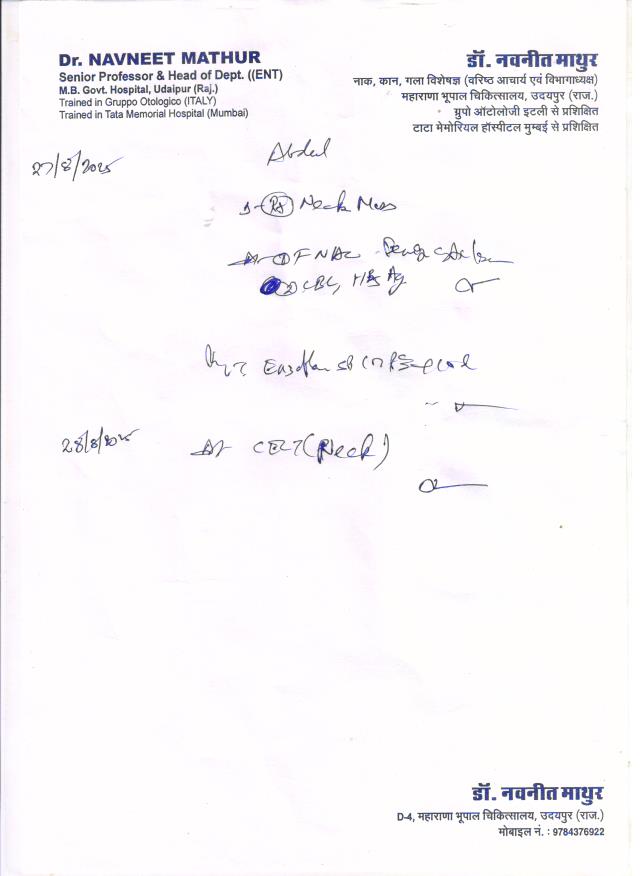 Dr. NAVNEET MATHUR
Senior Professor & Head of Dept. ((ENT)
M.B. Govt. Hospital, Udaipur (Raj.)
Trained in Gruppo Otologico (ITALY)
Trained in Tata Memorial Hospital (Mumbai)
डॉ. नवनीत माथुर
नाक, कान, गला विशेषज्ञ (वरिष्ठ आचार्य एवं विभागाध्यक्ष)
महाराणा भूपाल चिकित्सालय, उदयपुर (राज.)
ग्रुपो ऑटोलोजी इटली से प्रशिक्षित
टाटा मेमोरियल हॉस्पीटल मुम्बई से प्रशिक्षित
27/8/2025
Abdul
Neck Mass
FNAC
② CBC, HBsAg
28/8/2025
CECT (Neck)
डॉ. नवनीत माथुर
D-4, महाराणा भूपाल चिकित्सालय, उदयपुर (राज.)
मोबाइल नं. : 9784376922